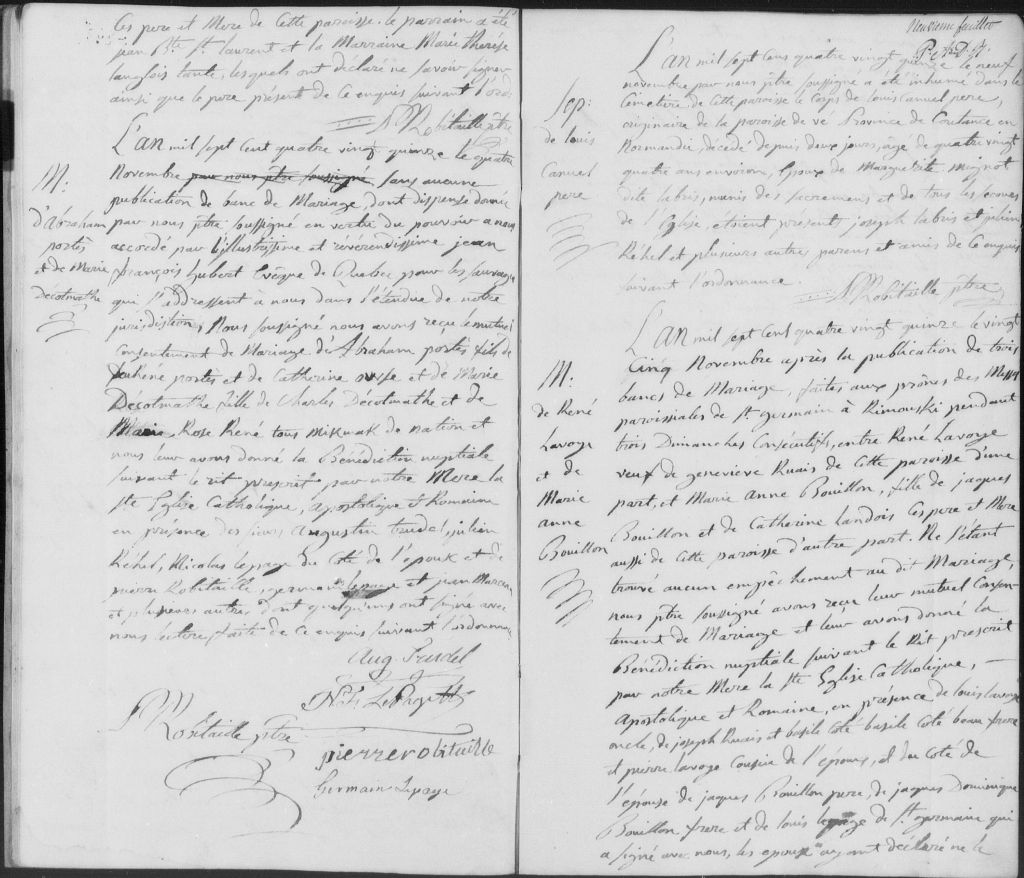 Ces pere et Mere de Cette paroisse. le parrain a été
jean Bte St laurent et la Marraine Marie therese
langlois tante, lesquels ont déclaré ne savoir signer
ainsi que le pere présent de Ce enquis suivant l'ord
Robitaille ptre
L'AN mil sept Cent quatre vingt quinze le quatre
Novembre par nous ptre soussigné sans aucune
publication de banc de Mariage, dont dispense donnée
par nous ptre soussigné en vertu du pouvoir a nous
accordé par l'illustrissime et reverendissime jean
françois hubert Evêque de Quebec pour les sauvages
qui s'addressent à nous dans l'étendue de notre
jurisdiction, Nous soussigné nous avons reçu le mutuel
Consentement de Mariage d'Abraham portés fils de
René portes et de Catherine et de Marie
Décotmathe fille de Charles Décotmathe et de
Marie Rose René tous Mikmak de nation et
nous leur avons donné la Bénédiction nuptiale
suivant le rit prescrit par notre Mere la
ste Eglise Catholique, apostolique & Romaine
en présence des sieurs Augustin trudel, julien
Réhel, Nicolas lepage du Coté de l'époux et de
pierre Robitaille, germain lepage et jean
et plusieurs autres dont quelqu'uns ont signé avec
nous lecture faite de Ce enquis suivant l'ordonnance
M:
d'Abraham
portés
et de Marie
Décotmathe
Aug. Trudel
Nols LePage
Robitaille ptre
pierre robitaille
Germain Lepage
Neuvieme feuillet
L'AN mil sept cens quatre vingt quinze le neuf
novembre par nous ptre soussigné a été inhumé dans le
Cemetiere de Cette paroisse le Corps de louis Canuel pere,
originaire de la paroisse de vé Province de Coutance en
Normandie, décédé depuis deux jours, âgé de quatre vingt
quatre ans environ, Epoux de Marguerite mignot
dite labrie, munis des sacremens et de tous les secours
de l'Eglise, etoient presents joseph labrie et julien
Réhel et plusieurs autres parens et amis de Ce enquis
suivant l'ordonnance.
Robitaille ptre
Sep:
de louis
Canuel
pere
L'AN mil sept Cent quatre vingt quinze le vingt
Cinq Novembre après la publication de trois
bancs de Mariage, faites aux prônes des Messes
paroissiales de St germain à Rimouski pendant
trois Dimanches Consécutifs, entre René Lavoye
veuf de genevieve Ruais de Cette paroisse d'une
part, et Marie Anne Bouillon, fille de jaques
Bouillon et de Catherine Landois Ces pere et Mere
aussi de Cette paroisse d'autre part. Ne s'étant
trouvé aucun empêchement au dit Mariage,
nous ptre soussigné avons reçu leur mutuel Consen-
tement de Mariage et leur avons donné la
Bénédiction nuptiale suivant le Rit prescrit
par notre Mere la ste Eglise Catholique,
Apostolique et Romaine, en présence de louis lavoye
oncle, de joseph Ruais et basile Coté basile Coté beau frere
et pierre lavoye Cousin de l'époux, et du Coté de
l'épouse de jaques Bouillon pere, de jaques Dominique
Bouillon frere et de louis lepage de St germain qui
a signé avec nous, les epoux ayant déclaré ne le
M:
de René
Lavoye
et de
Marie
anne
Bouillon